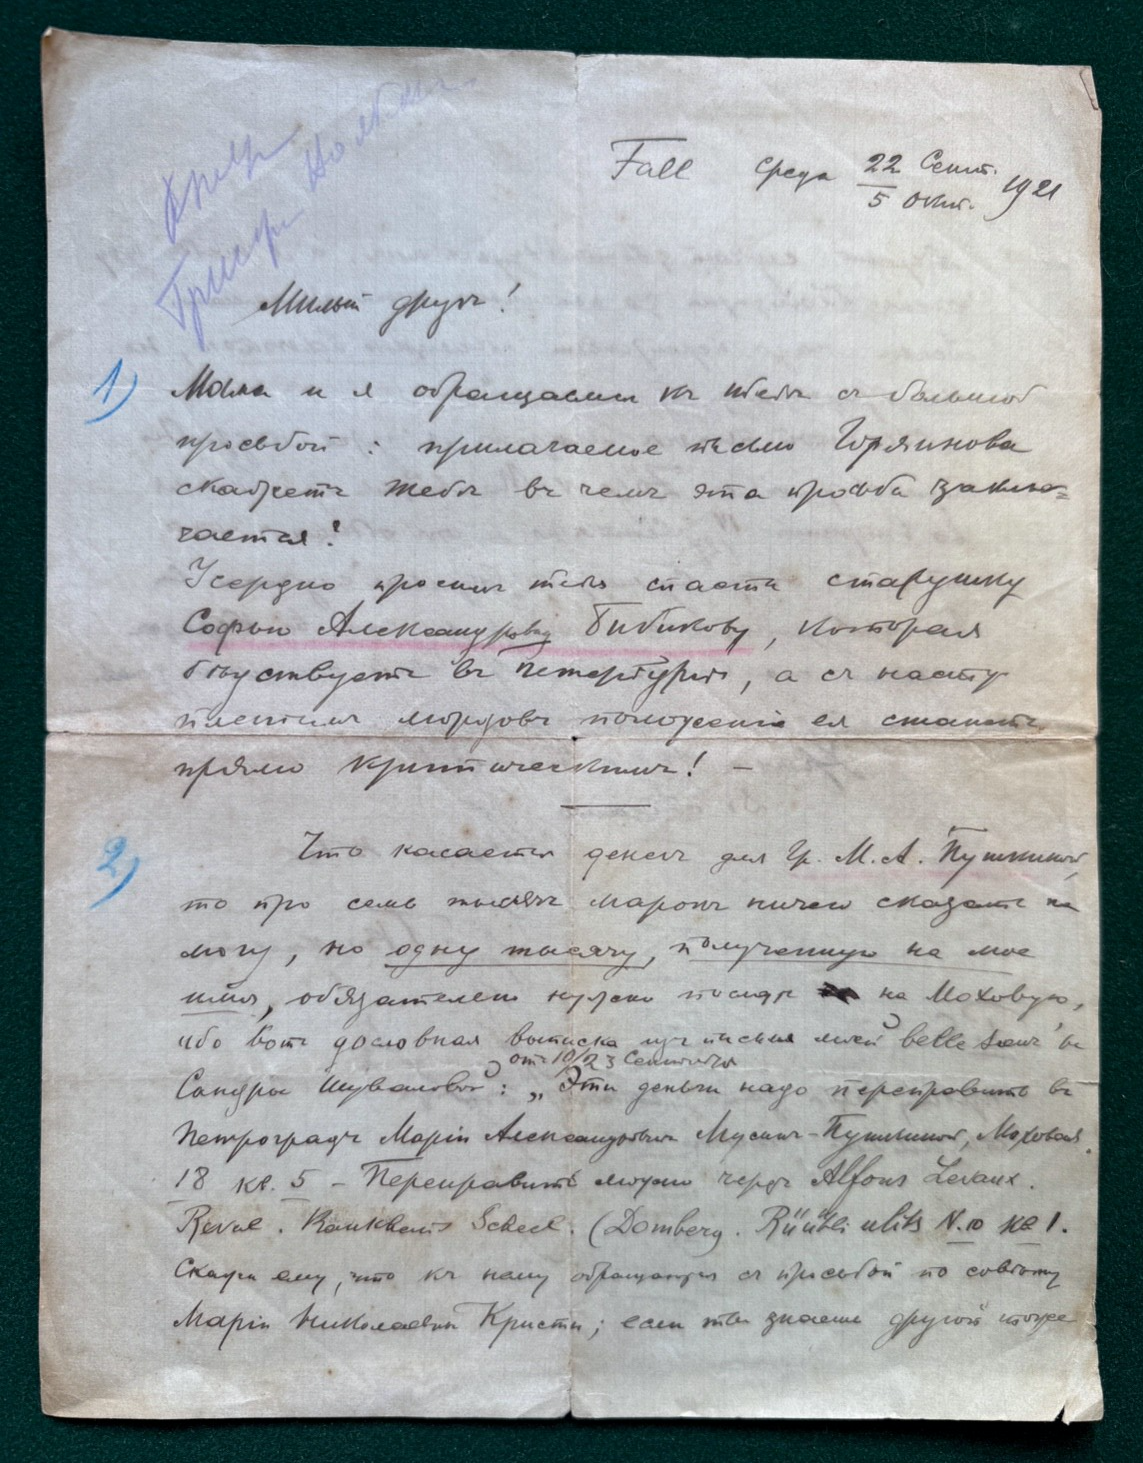 Fall среда 22 Сент.
5 Окт. 1921
Милый другъ!
1) Мама и я обращаемся къ тебѣ съ большой
просьбой: прилагаемое письмо Горяинова
скажетъ тебѣ въ чемъ эта просьба заклю=
чается!
Усердно просимъ тебя спасти старушку
Софью Александровну Бибикову, которая
бѣдствуетъ въ Петербургѣ, а съ насту-
пленіемъ морозовъ положеніе ея станетъ
прямо критическимъ! —
2) Что касается денегъ для Гр. М. А. Пушкиной,
то про семь тысячъ марокъ ничего сказать не
могу, но одну тысячу, полученную на мое
имя, обязательно нужно послать на Моховую,
ибо вотъ дословная выписка изъ письма моей belle soeur'ѣ
отъ 10/23 Сентября
Сандры Шуваловой: „Эти деньги надо переправить въ
Петроградъ Маріи Александровнѣ Мусиной-Пушкиной, Моховая
18 кв. 5 – Переправить можно черезъ Alfons Levaux.
Reval. (Domberg. Rüütli ulits N. 10 кв 1.
Скажи ему, что къ нему обращаются съ просьбой по совѣту
Маріи Николаевны Кристи; если ты знаешь другой тоже